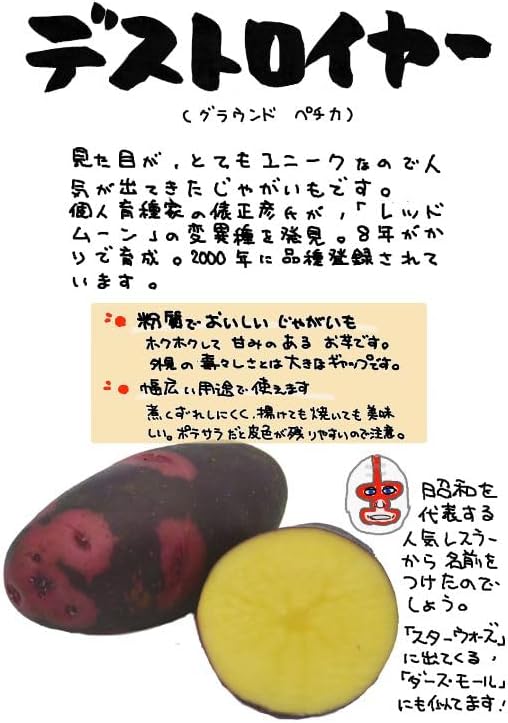 デストロイヤー
(グラウンド ペチカ)
見た目が、とてもユニークなので人
気が出てきたじゃがいもです。
個人育種家の俵正彦氏が、「レッド
ムーン」の変異種を発見。8年がか
りで育成。2000年に品種登録されて
います。
粉質でおいしいじゃがいも
ホクホクして 甘みのある お芋です。
外見の毒々しさとは大きなギャップです。
幅広い用途で使えます
煮くずれしにくく、揚げても焼いても美味
しい。ポテサラだと皮色が残りやすいので注意。
昭和を
代表する
人気レスラー
から 名前を
つけたので
しょう。
「スターウォーズ」
に出てくる、
「ダース・モール」
にも似てます!